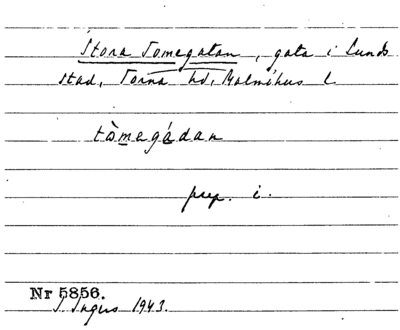 Stora Tomegatan, gata i Lunds
stad, Torna hd, Malmöhus l.
tòmegádan
prep. i.
Nr 5856.
S. Ingers 1943.